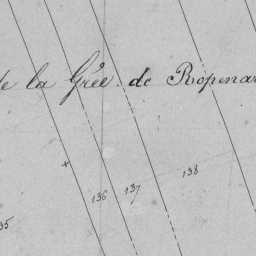 de la Grée de Ropenar
138
137
136
35